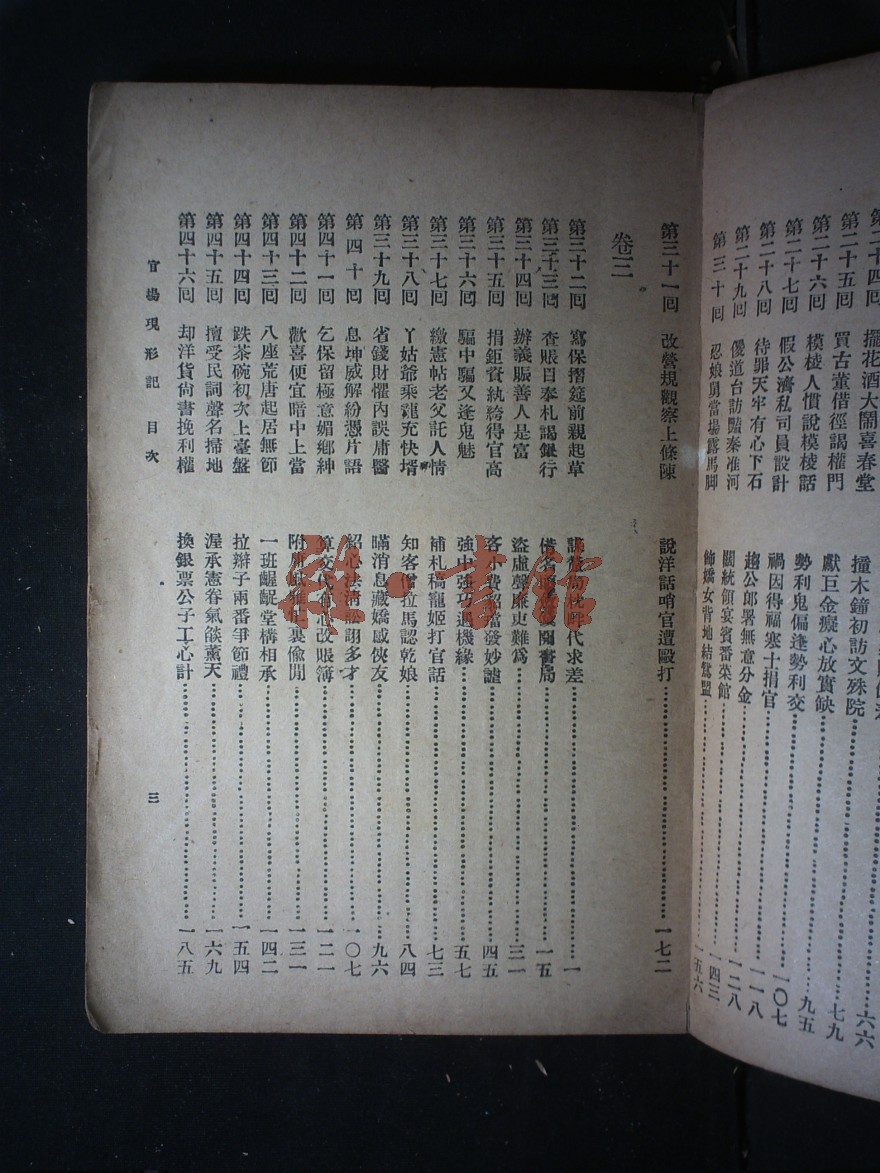 擺花酒大鬧喜春堂 撞木鐘初訪文殊院 六六
第二十五回 買古董借徑謁權門 獻巨金癡心放實缺 七九
第二十六回 模棱人慣說模棱話 勢利鬼偏逢勢利交 九五
第二十七回 假公濟私司員設計 禍因得福寒士捐官 一〇七
第二十八回 待罪天牢有心下石 趨公郎署無意分金 一一八
第二十九回 傻道台訪豔秦淮河 闊統領宴賓番菜館 一二八
第三十回 認娘舅當場露馬脚 飾嬌女背地結鴛盟 一四三
一五六
第三十一回 改營規觀察上條陳 說洋話哨官遭毆打 一七二
卷三
第三十二回 寫保摺筵前親起草 代求差 一
第三十三回 查賬目奉札謁銀行 借名 書局 一五
第三十四回 辦義賑善人是富 盜虛聲廉吏難爲 三一
第三十五回 捐鉅貲紈絝得官高 吝小費貂璫發妙謔 四五
第三十六回 騙中騙又逢鬼魅 強中強巧遇機緣 五七
第三十七回 繳憲帖老父託人情 補札稿寵姬打官話 七三
第三十八回 丫姑爺乘龍充快壻 知客僧拉馬認乾娘 八四
第三十九回 省錢財懼內誤庸醫 瞞消息藏嬌感俠友 九六
第四十回 息坤威解紛憑片語 紹心法清訟詡多才 一〇七
第四十一回 乞保留極意媚鄉紳 算交代有心改賬簿 一二一
第四十二回 歡喜便宜暗中上當 附庸風雅忙裏偸閒 一三一
第四十三回 八座荒唐起居無節 一班齷齪堂構相承 一四二
第四十四回 跌茶碗初次上臺盤 拉辮子兩番爭節禮 一五四
第四十五回 擅受民詞聲名掃地 渥承憲眷氣燄薰天 一六九
第四十六回 却洋貨尙書挽利權 換銀票公子工心計 一八五
官場現形記 目次 三
啟一書館